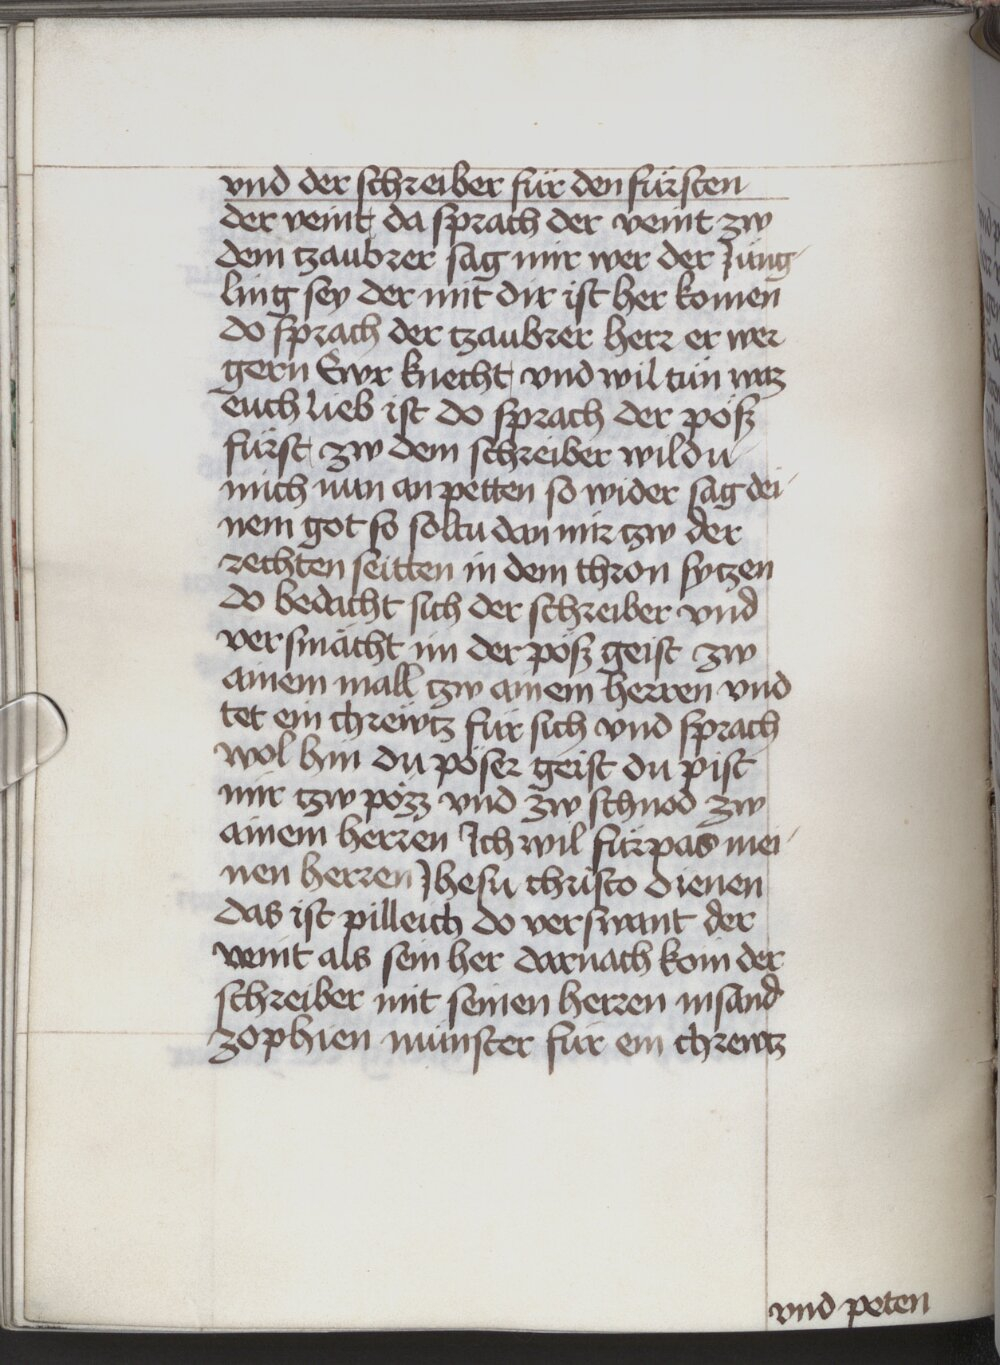 vnd der schreiber für den fürsten
der veint da sprach der veint zw
dem tzaubrer sag mir wer der Jüng-
ling sey der mit dir ist her komen
do sprach der tzaubrer herr er wer
gern Ewr knecht vnd wil tün waz
euch lieb ist do sprach der pöß
fürst zw dem schreiber wildu
mich nun an petten so wider sag dei-
nem got so soltu dan mir tzw der
rechten seitten in dem thron sytzen
do bedacht sich der schreiber vnd
versmächt im der pöß geist zw
ainem mall tzw ainem herren vnd
tet ein chrewtz für sich vnd sprach
wol hin du pöser geist du pist
mir tzw pözz vnd zw schnöd zw
ainem herren Jch wil fürpas mei-
nen herren Jhesu christo dienen
das ist pilleich do verswant der
veint als sein her darnach kom der
schreiber mit seinen herren in sand
zophien münster für ein chrewtz
vnd peten